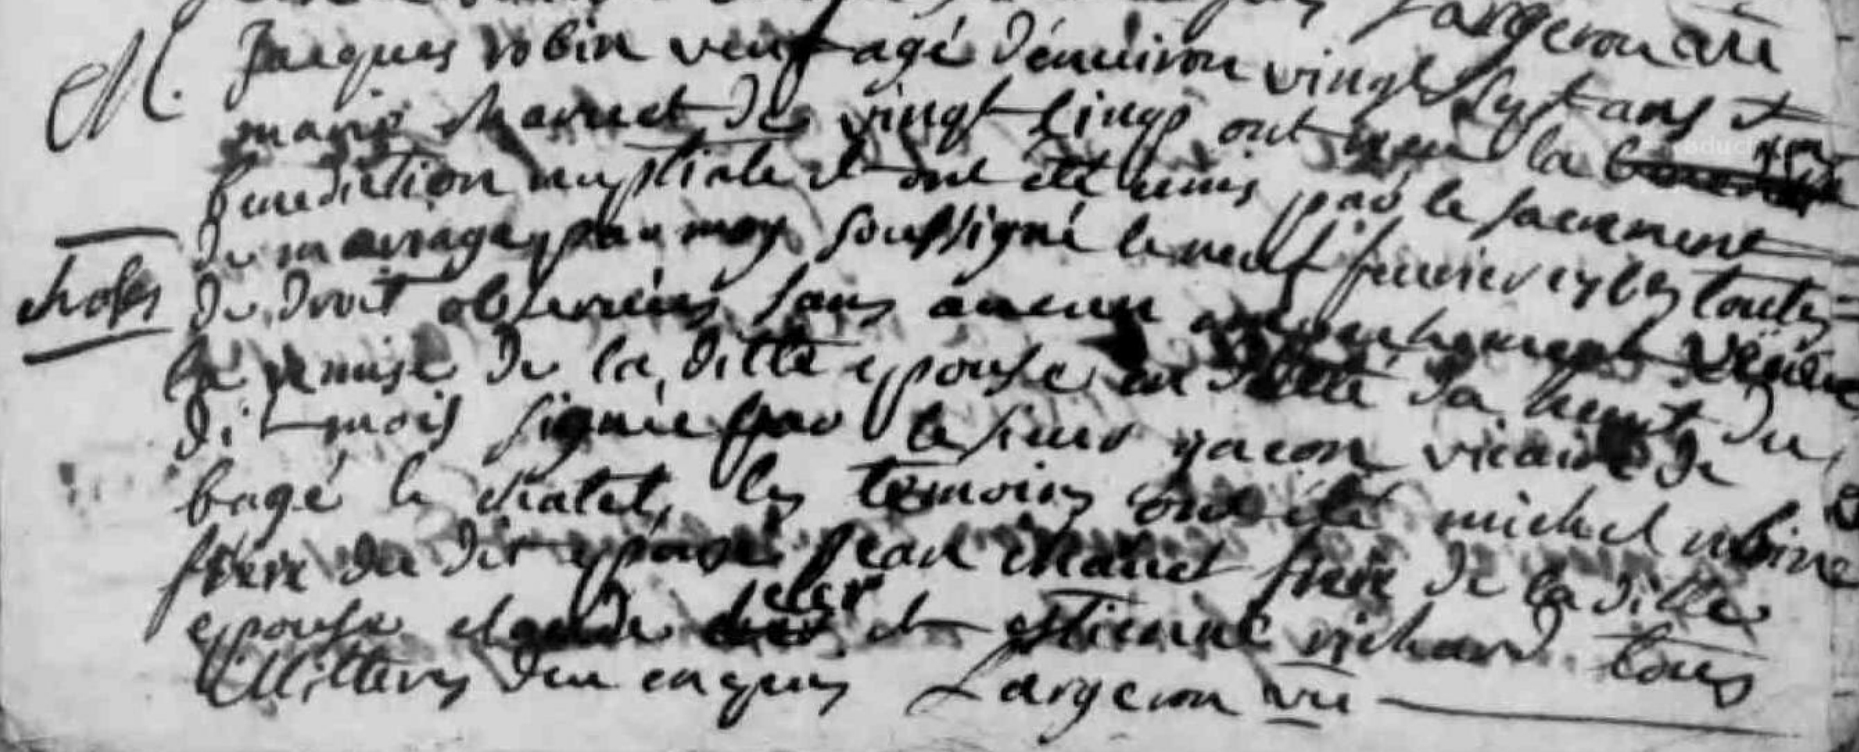 Largeron
M. Jacques robin veuf agé d'enuiron vingt sept ans et
marie de vingt cinq ont la
benediction nuptiale et ont eté unis par le sacrement
de mariage par moy soussigné le neuf feurier toutes
choses de droit obseruées sans aucun
la remise de la ditte epouse en datte du huit du
dit mois signée par le sieur yacon vicaire de
bagé le chatel, les temoins ont été michel robin
frere du dit epoux jean frere de la ditte
epouse claude et estienne richard tous
illitterés Largeron